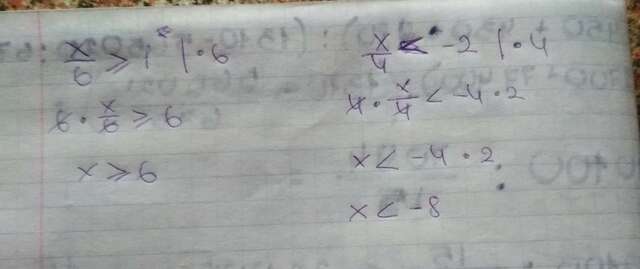 x/6 ≥ 1 | · 6
6 · x/6 ≥ 6
x ≥ 6
x/4 < -2 | · 4
4 · x/4 < -4 · 2
x < -4 · 2
x < -8